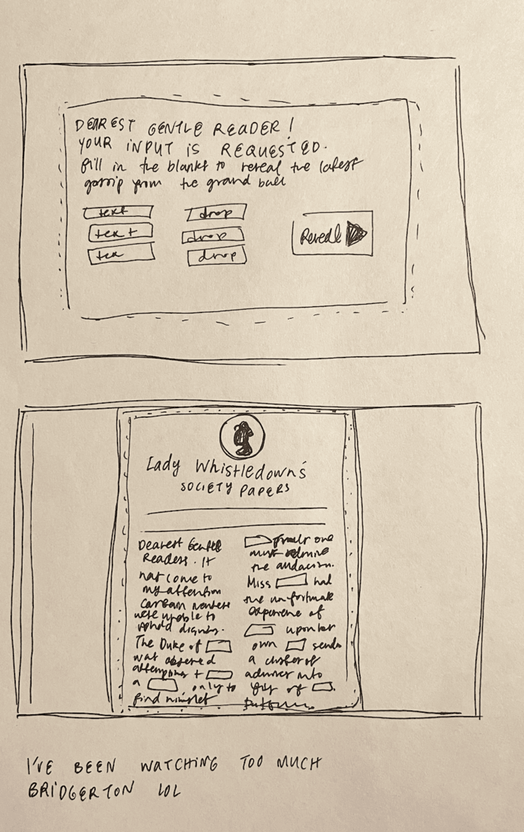 DEAREST GENTLE READER!
YOUR INPUT IS REQUESTED.
fill in the blanks to reveal the latest
gossip from the grand ball
text drop
text drop Reveal
tex drop
Lady Whistledown's
SOCIETY PAPERS
Dearest Gentle
Readers. It
has come to
my attention
certain members
were unable to
uphold dignity.
The Duke of
was observed
attempting to
a only to
find himself
one
must admire
the audacity.
Miss had
the unfortunate
experience of
upon her
own sends
a cluster of
admirers into
fits of
I'VE BEEN WATCHING TOO MUCH
BRIDGERTON LOL